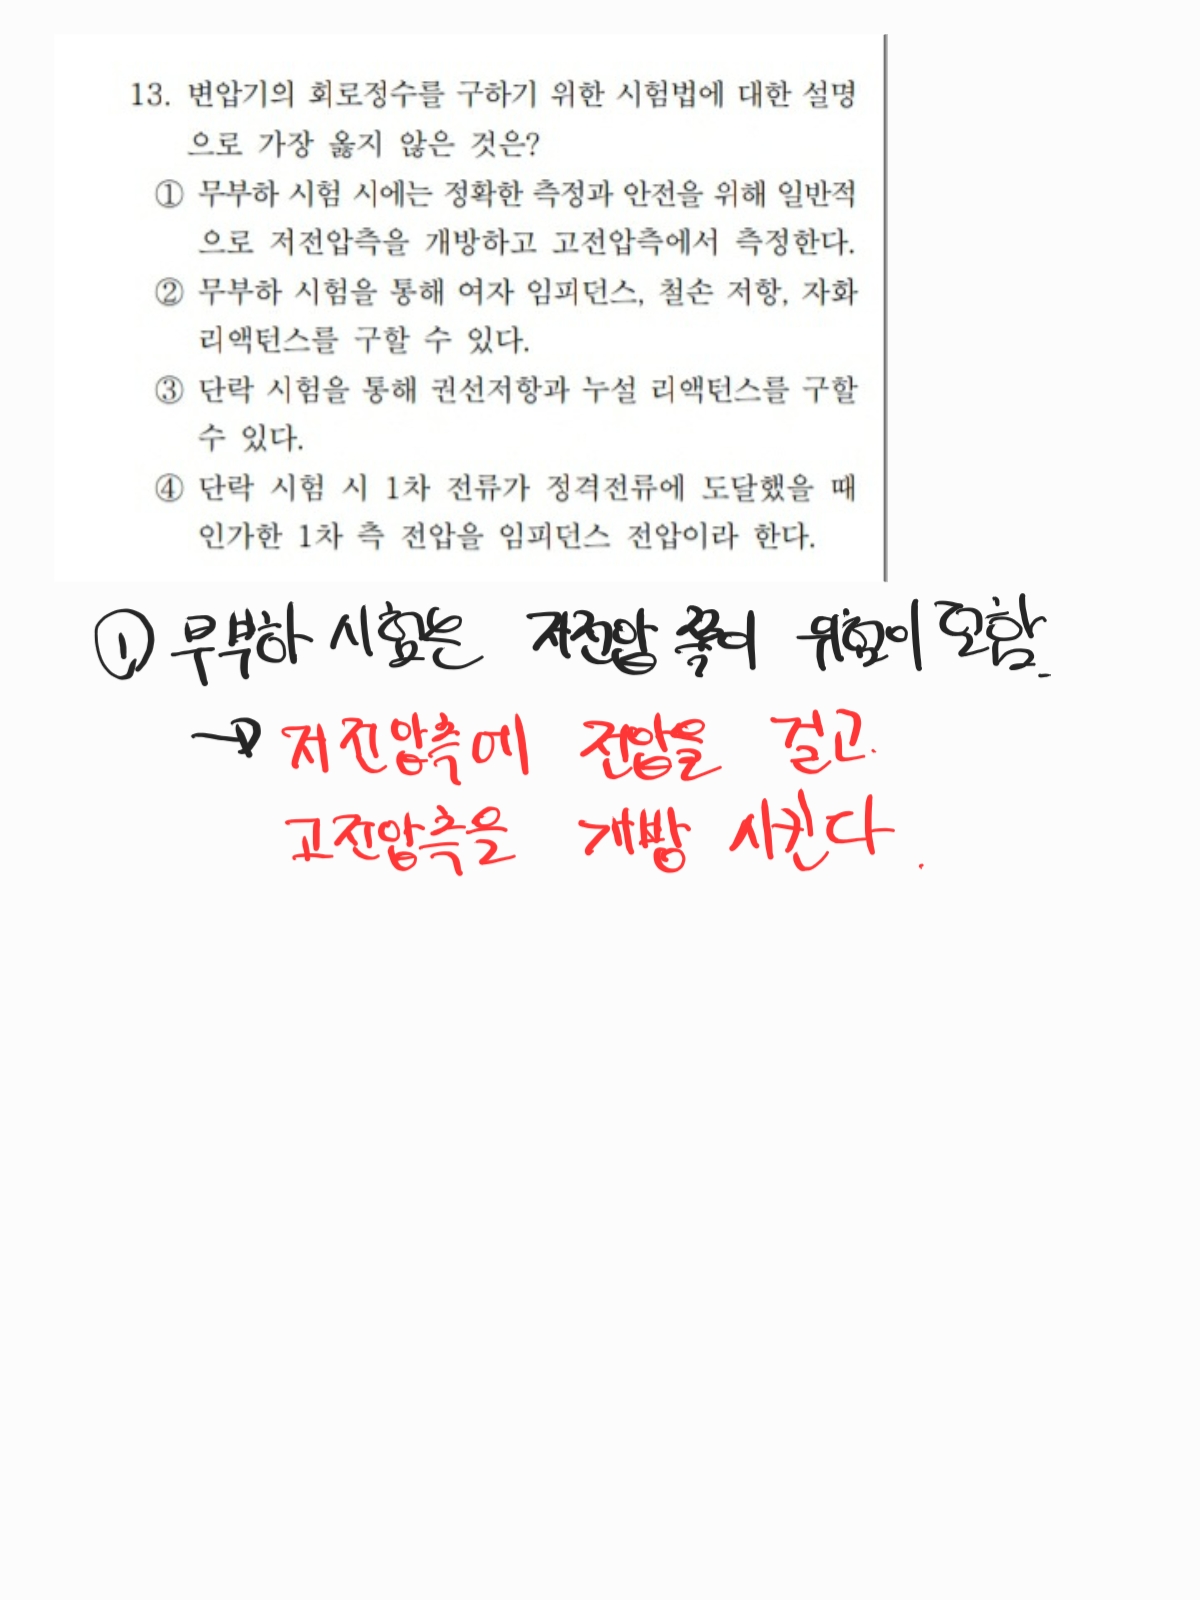 13. 변압기의 회로정수를 구하기 위한 시험법에 대한 설명
으로 가장 옳지 않은 것은?
① 무부하 시험 시에는 정확한 측정과 안전을 위해 일반적
으로 저전압측을 개방하고 고전압측에서 측정한다.
② 무부하 시험을 통해 여자 임피던스, 철손 저항, 자화
리액턴스를 구할 수 있다.
③ 단락 시험을 통해 권선저항과 누설 리액턴스를 구할
수 있다.
④ 단락 시험 시 1차 전류가 정격전류에 도달했을 때
인가한 1차 측 전압을 임피던스 전압이라 한다.
① 무부하 시험은 저전압 쪽이 위험이 덜함.
→ 저전압측에 전압을 걸고
고전압측을 개방 시킨다.